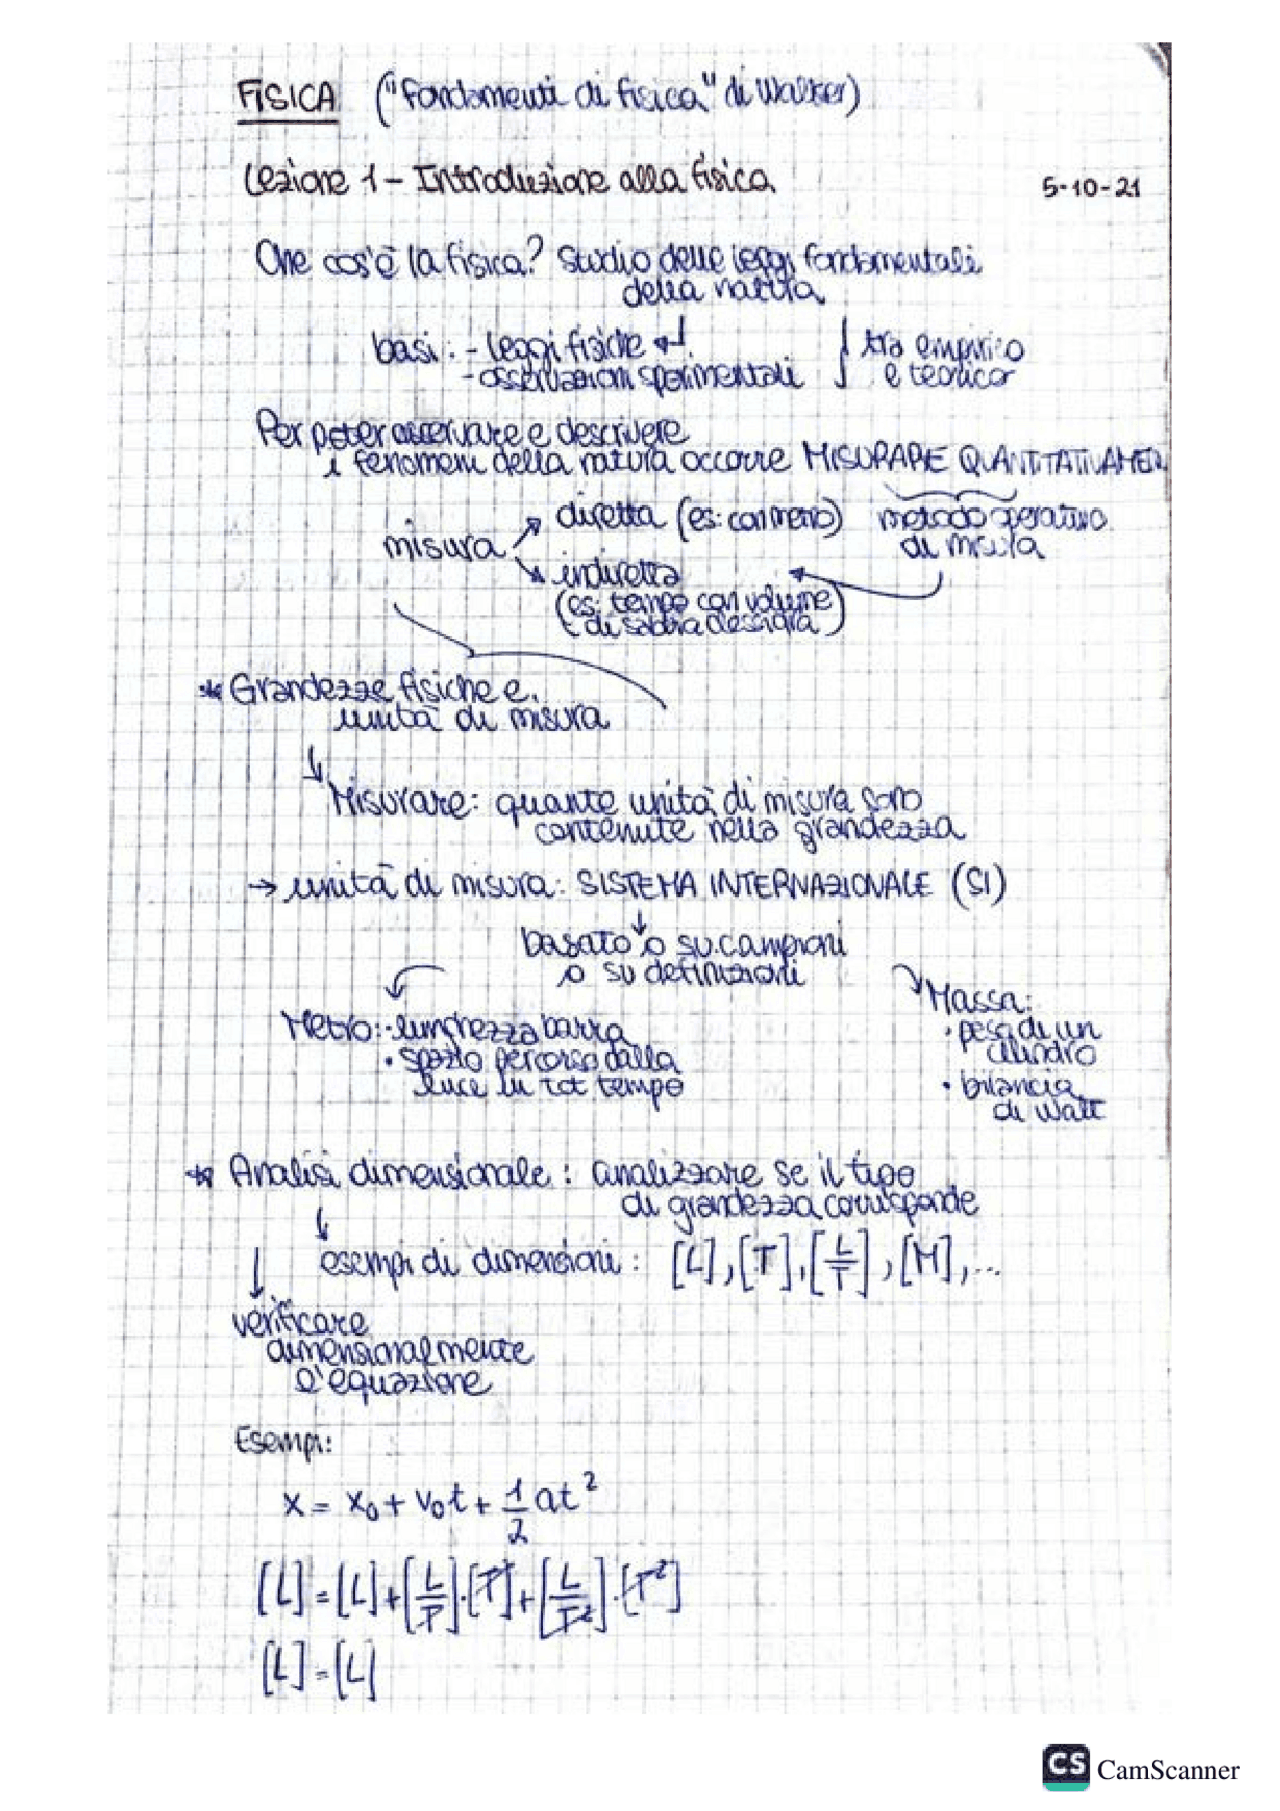 FISICA ("Fondamenti di fisica" di Walker)
Lezione 1 - Introduzione alla fisica
5-10-21
Che cos'è la fisica? Studio delle leggi fondamentali
della natura
basi: - leggi fisiche
- osservazioni sperimentali
tra empirico
e teorico
Per poter osservare e descrivere
i fenomeni della natura occorre MISURARE QUANTITATIVAMEN
misura
diretta (es: con metro)
metodo operativo
di misura
indiretta
(es: tempo con volume
di sabbia clessidra)
* Grandezze fisiche e
unità di misura
Misurare: quante unità di misura sono
contenute nella grandezza
→ unità di misura: SISTEMA INTERNAZIONALE (SI)
basato o su campioni
o su definizioni
Metro: · lunghezza barra
· spazio percorso dalla
luce in tot tempo
Massa:
· peso di un
cilindro
· bilancia
di Watt
* Analisi dimensionale: analizzare se il tipo
di grandezza corrisponde
esempi di dimensioni: [L], [T], [L/T], [M], ...
verificare
dimensionalmente
l'equazione
Esempi:
x = x₀ + v₀t + 1/2 at²
[L] = [L] + [L/T]·[T] + [L/T²]·[T²]
[L] = [L]
CS CamScanner